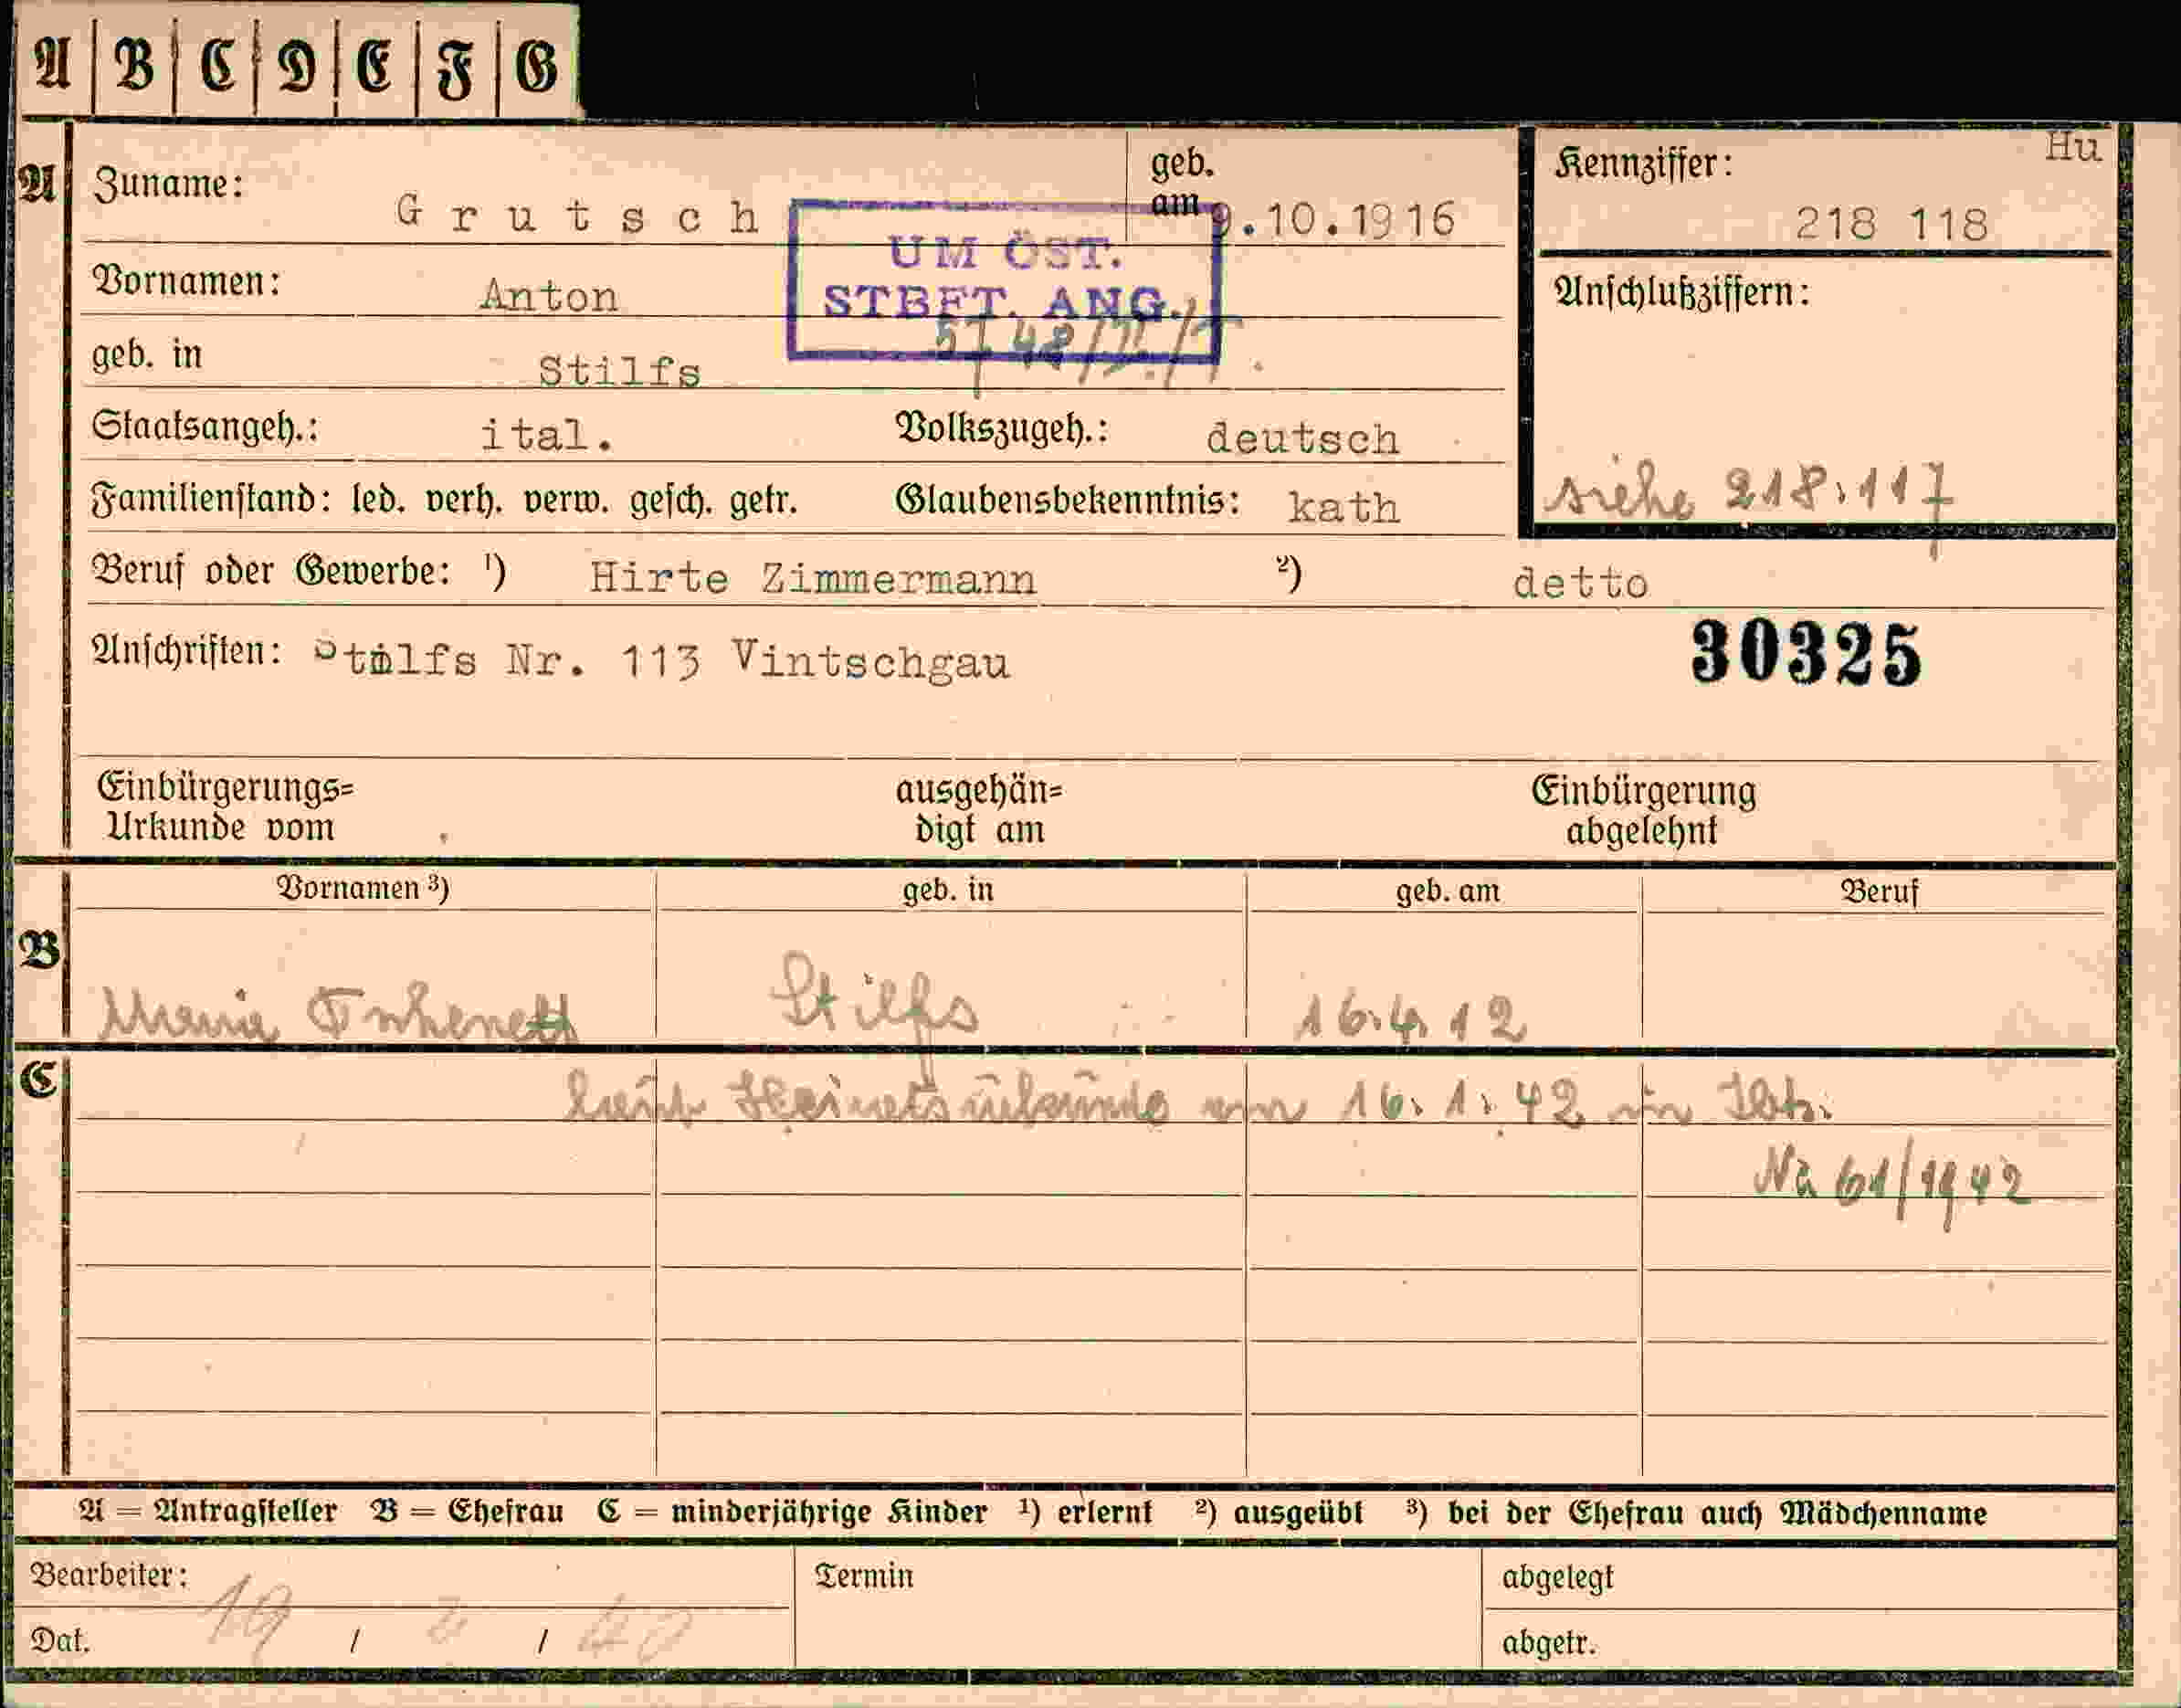 A B C D E F G
Hu
A Zuname: Grutsch geb. am 9.10.1916 Kennziffer: 218 118
UM ÖST.
Vornamen: Anton STBFT. ANG. Anschlußziffern:
geb. in Stilfs
Staatsangeh.: ital. Volkszugeh.: deutsch
Familienstand: led. verh. verw. gesch. getr. Glaubensbekenntnis: kath siehe 218.117
Beruf oder Gewerbe: ¹) Hirte Zimmermann ²) detto
Anschriften: Stilfs Nr. 113 Vintschgau 30325
Einbürgerungs= ausgehän= Einbürgerung
Urkunde vom digt am abgelehnt
Vornamen ³) geb. in geb. am Beruf
B Maria Stilfs 16.4.12
C
16.1.42 in
61/1942
A = Antragsteller B = Ehefrau C = minderjährige Kinder ¹) erlernt ²) ausgeübt ³) bei der Ehefrau auch Mädchenname
Bearbeiter: Termin abgelegt
Dat. 19 / 2 / 40 abgetr.